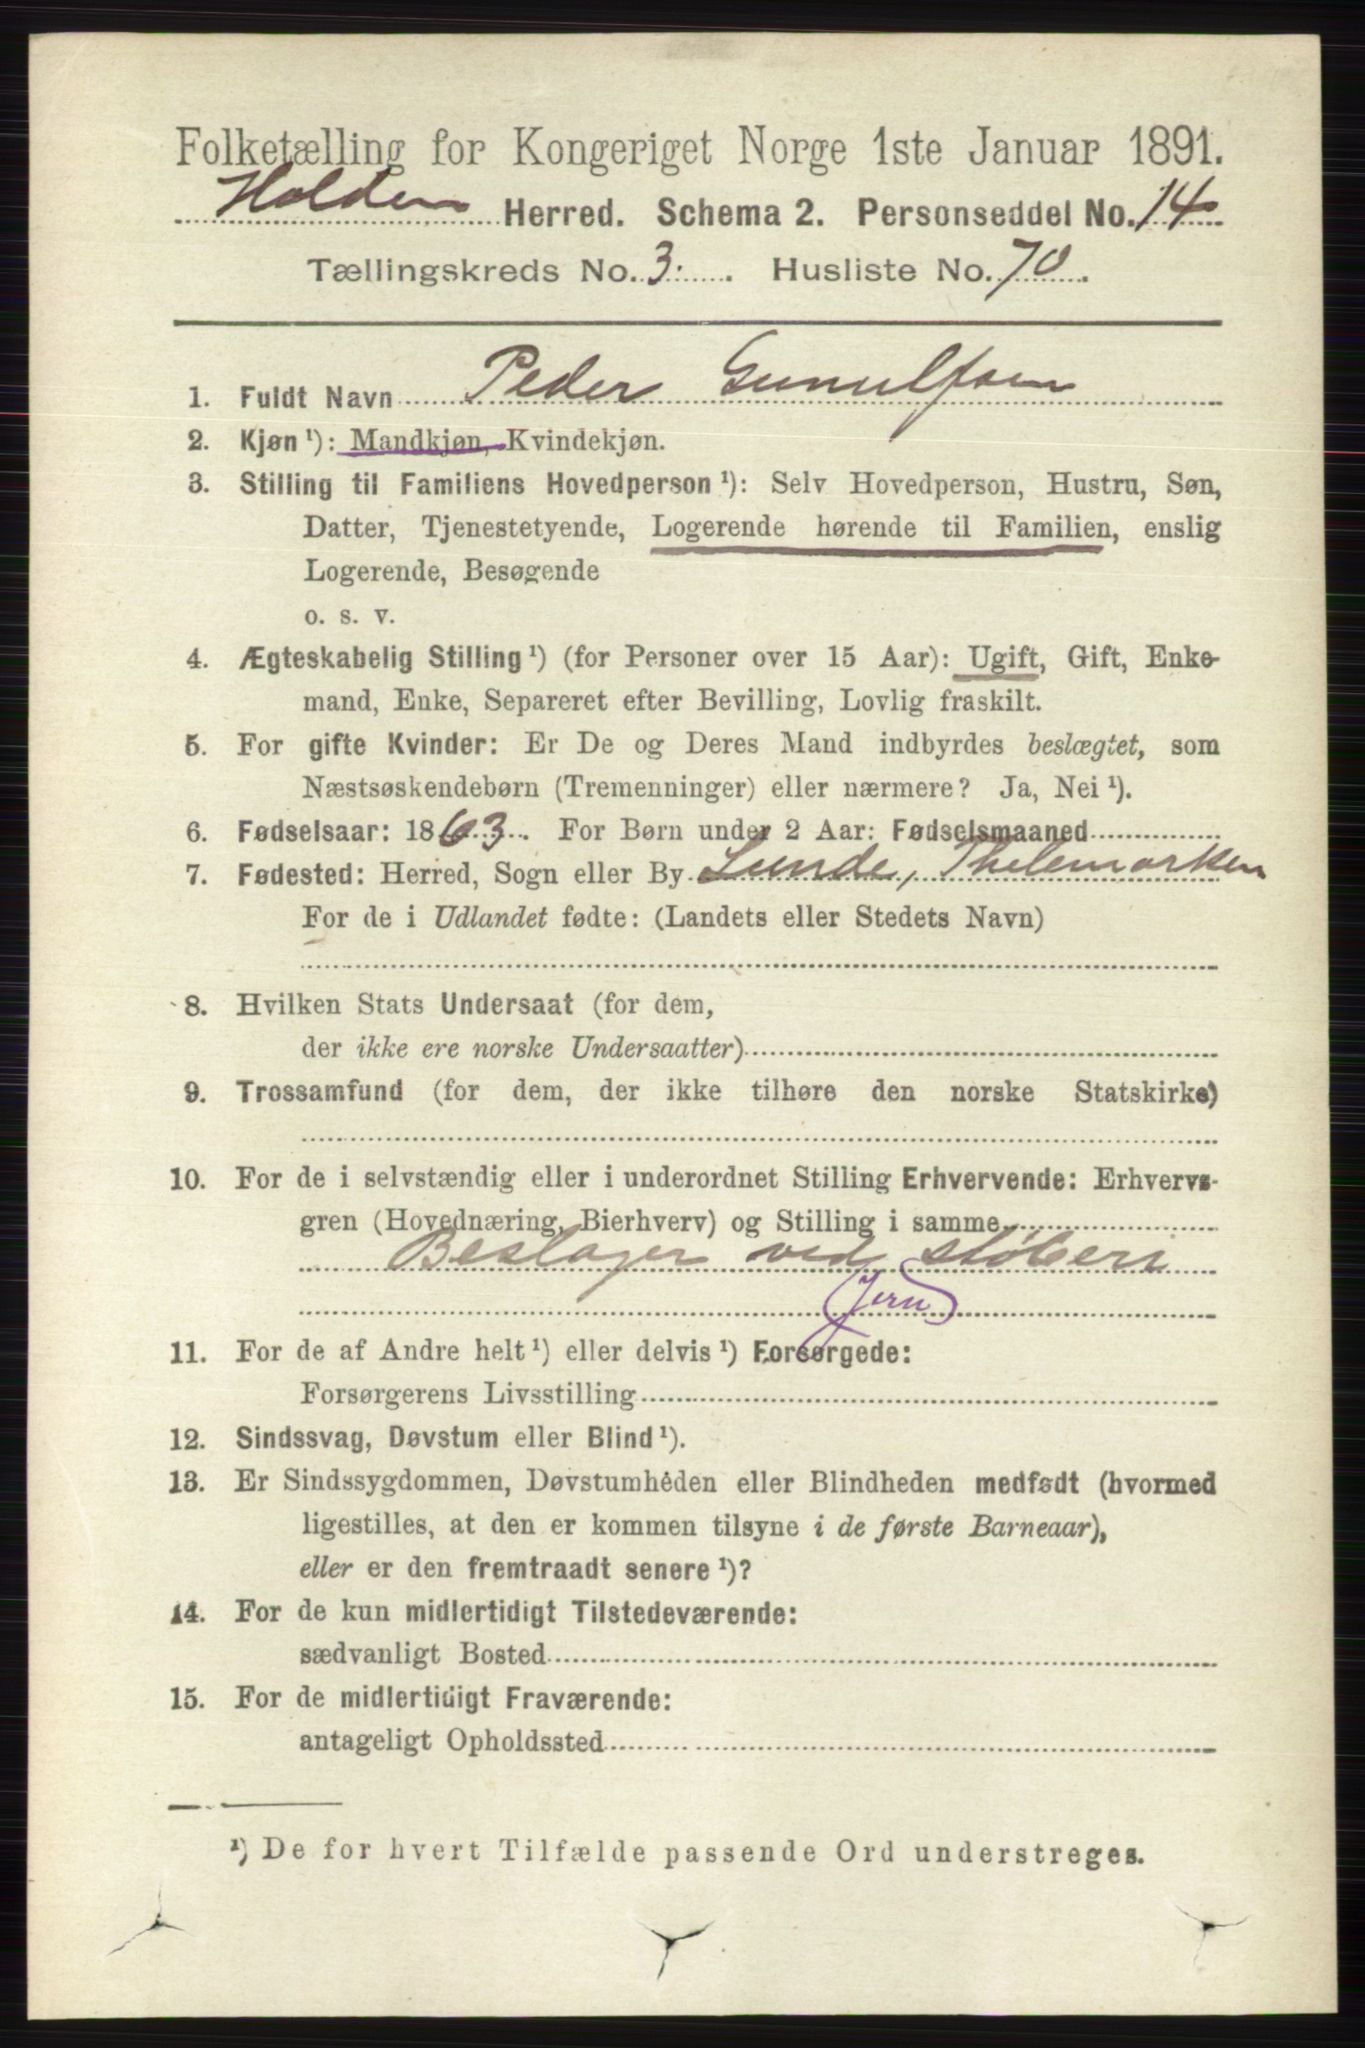 Folketælling for Kongeriget Norge 1ste Januar 1891.
Holden Herred. Schema 2. Personseddel No. 14
Tællingskreds No. 3. Husliste No. 70.
1. Fuldt Navn Peder Gunulfsen
2. Kjøn ¹): Mandkjøn, Kvindekjøn.
3. Stilling til Familiens Hovedperson ¹): Selv Hovedperson, Hustru, Søn,
Datter, Tjenestetyende, Logerende hørende til Familien, enslig
Logerende, Besøgende
o. s. v.
4. Ægteskabelig Stilling ¹) (for Personer over 15 Aar): Ugift, Gift, Enke-
mand, Enke, Separeret efter Bevilling, Lovlig fraskilt.
5. For gifte Kvinder: Er De og Deres Mand indbyrdes beslægtet, som
Næstsøskendebørn (Tremenninger) eller nærmere? Ja, Nei ¹).
6. Fødselsaar: 1863. For Børn under 2 Aar: Fødselsmaaned
7. Fødested: Herred, Sogn eller By Lunde, Thelemarken
For de i Udlandet fødte: (Landets eller Stedets Navn)
8. Hvilken Stats Undersaat (for dem,
der ikke ere norske Undersaatter)
9. Trossamfund (for dem, der ikke tilhøre den norske Statskirke)
10. For de i selvstændig eller i underordnet Stilling Erhvervende: Erhvervs-
gren (Hovednæring, Bierhverv) og Stilling i samme
Beslager ved støberi
Jern
11. For de af Andre helt ¹) eller delvis ¹) Forsørgede:
Forsørgerens Livsstilling
12. Sindssvag, Døvstum eller Blind ¹).
13. Er Sindssygdommen, Døvstumheden eller Blindheden medfødt (hvormed
ligestilles, at den er kommen tilsyne i de første Barneaar),
eller er den fremtraadt senere ¹)?
14. For de kun midlertidigt Tilstedeværende:
sædvanligt Bosted
15. For de midlertidigt Fraværende:
antageligt Opholdssted
¹) De for hvert Tilfælde passende Ord understreges.